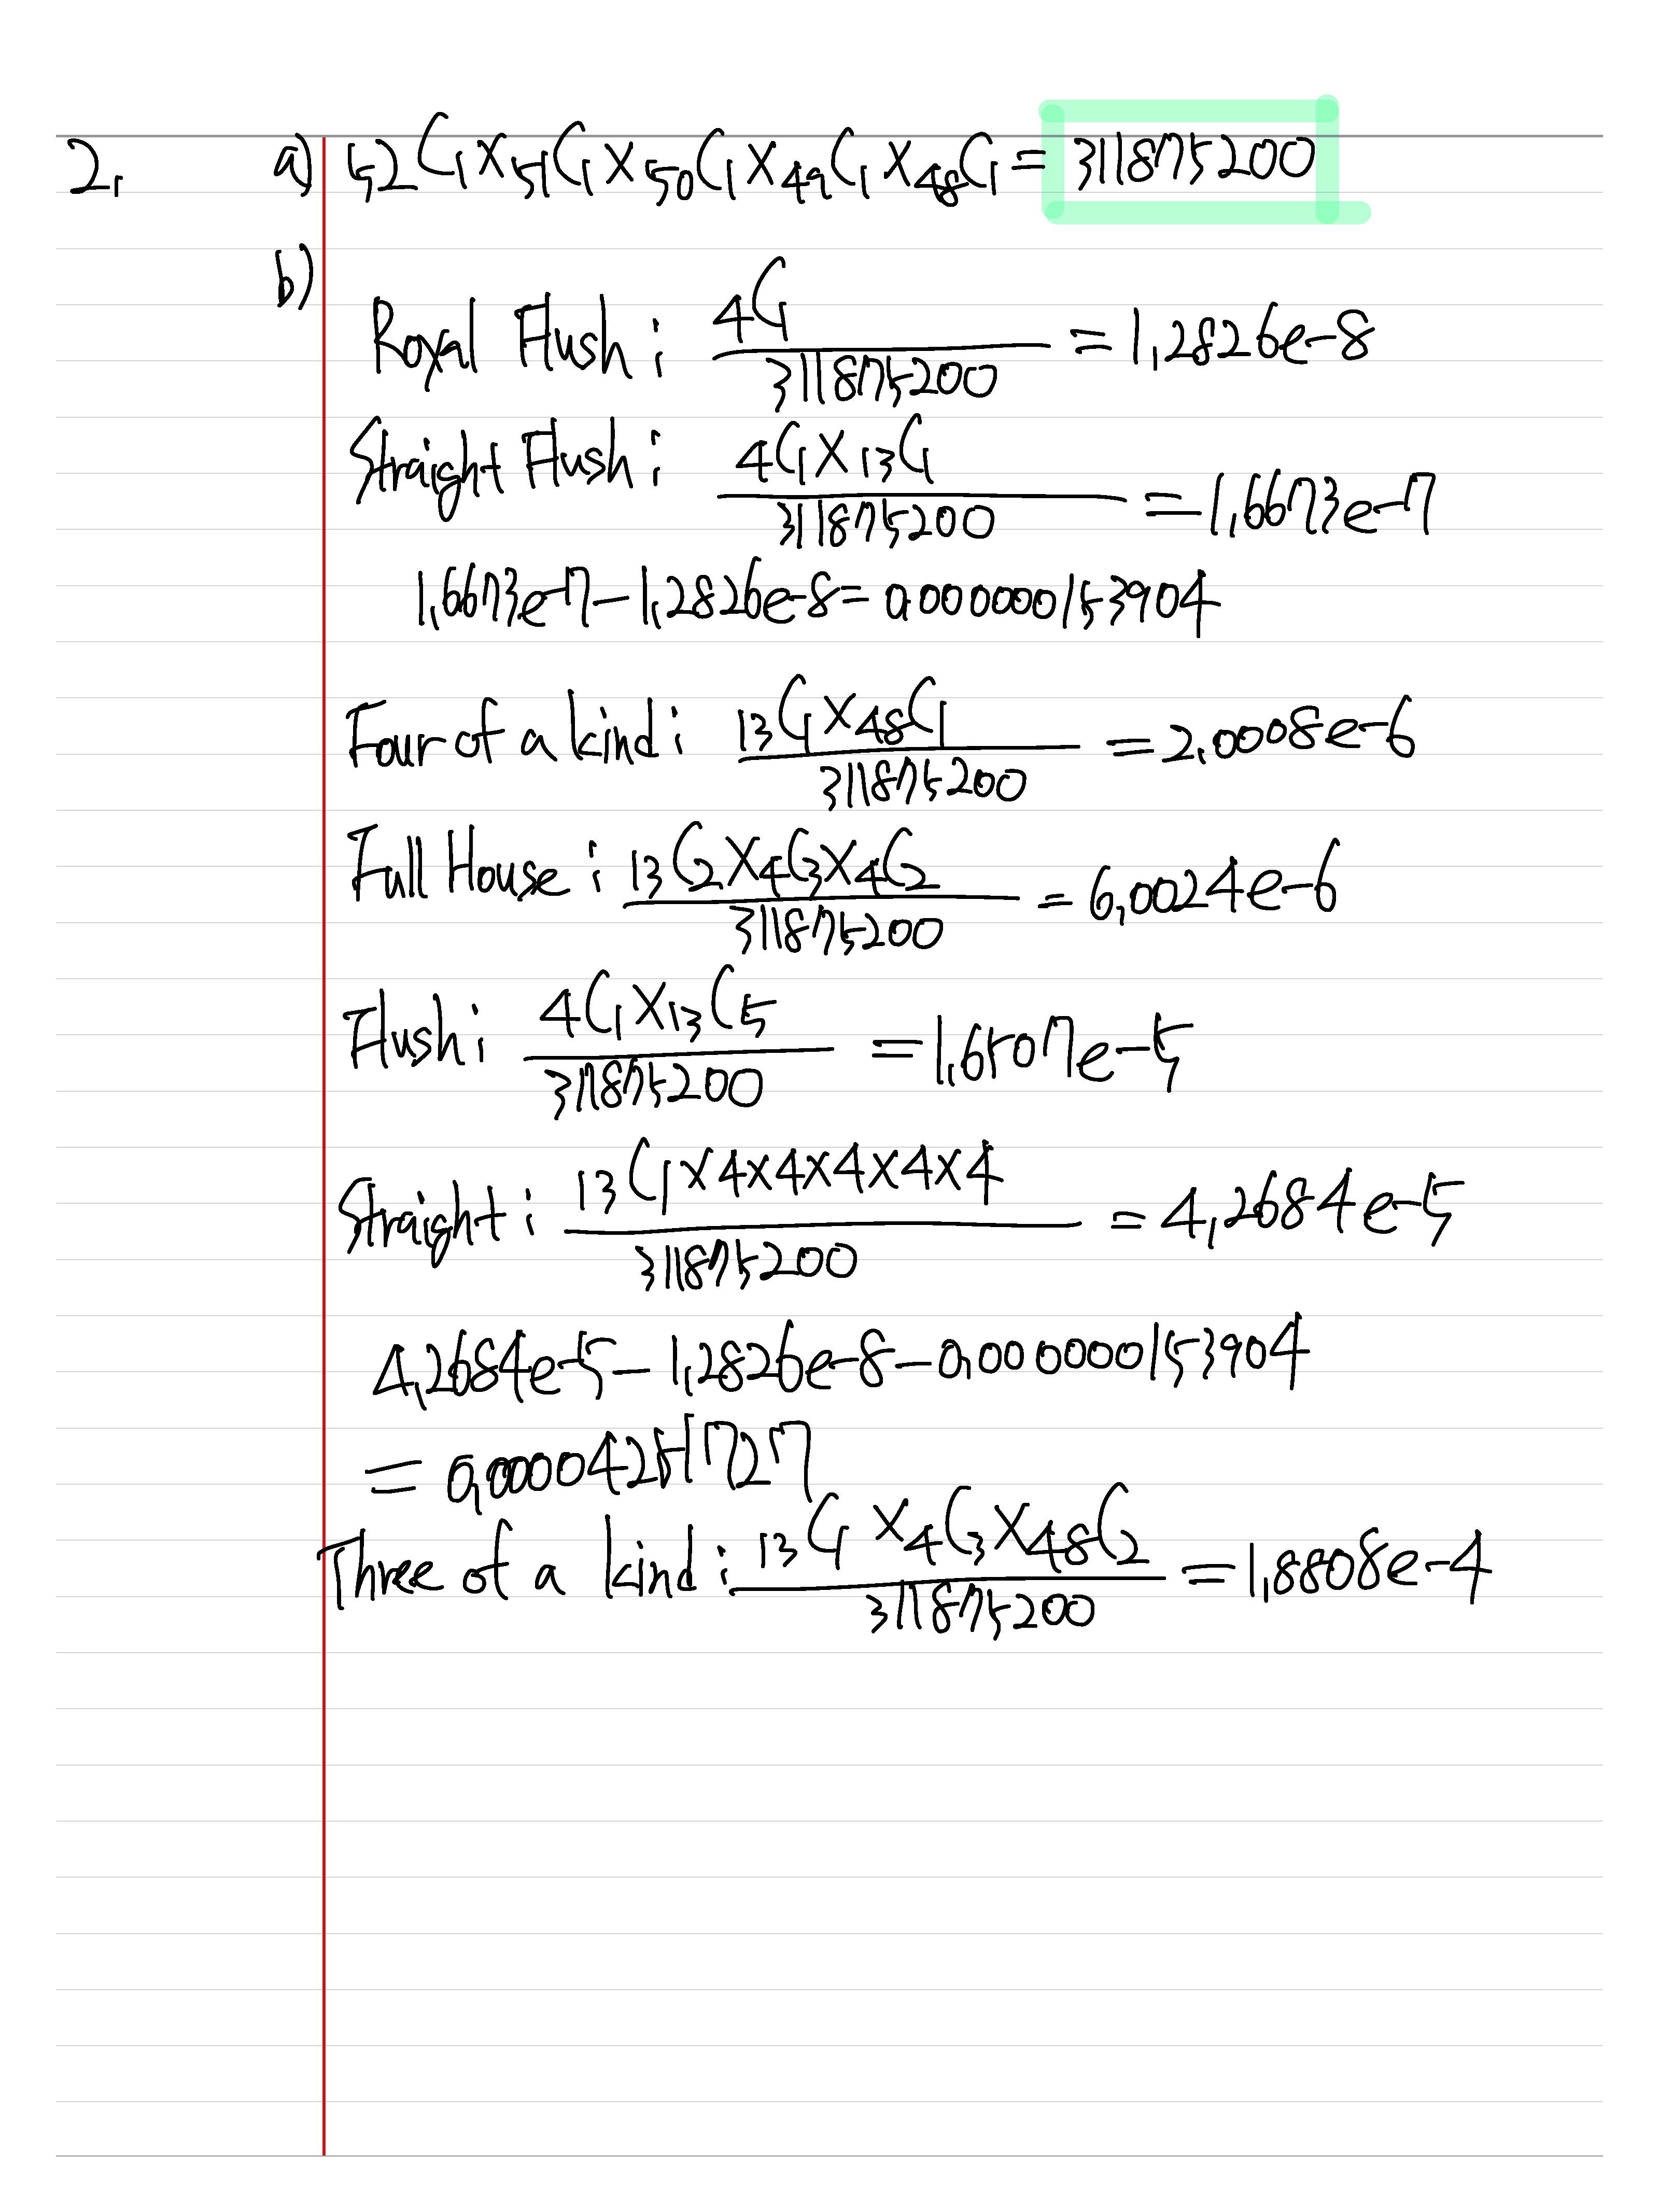 2. a) 52C1 × 51C1 × 50C1 × 49C1 × 48C1 = 311875200
b)
Royal Flush: 4C1 / 311875200 = 1.2826e-8
Straight Flush: 4C1 × 13C1 / 311875200 = 1.6673e-7
1.6673e-7 - 1.2826e-8 = 0.000000153904
Four of a kind: 13C1 × 48C1 / 311875200 = 2.0008e-6
Full House: 13C2 × 4C3 × 4C2 / 311875200 = 6.0024e-6
Flush: 4C1 × 13C5 / 311875200 = 1.6507e-5
Straight: 13C1 × 4 × 4 × 4 × 4 × 4 / 311875200 = 4.2684e-5
4.2684e-5 - 1.2826e-8 - 0.000000153904
= 0.00004251727
Three of a kind: 13C1 × 4C3 × 48C2 / 311875200 = 1.8808e-4